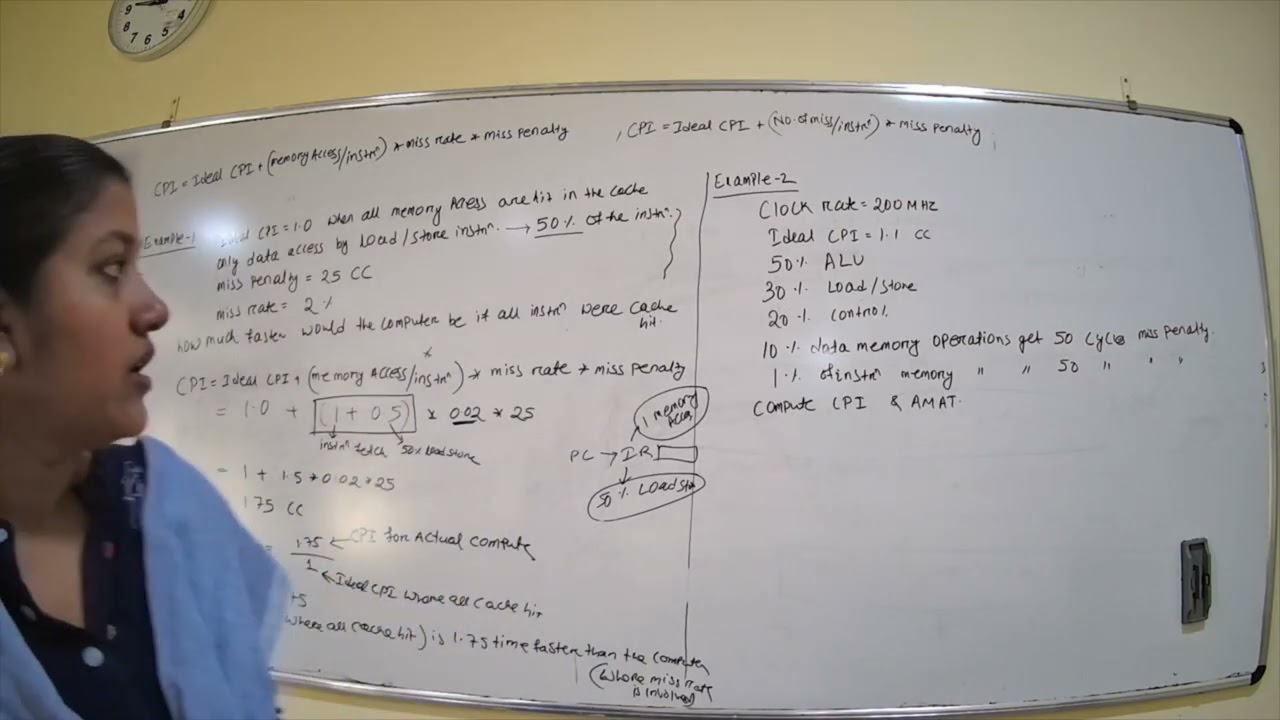 9
8
7 6 5
4
CPI = Ideal CPI + (memory Access/instrⁿ) * miss rate * miss penalty
, CPI = Ideal CPI + (No. of miss/instrⁿ) * miss penalty
Example-1
CPI = 1.0 when all memory Access are hit in the cache
only data access by Load/Store instrⁿ. → 50% of the instrⁿ.
miss penalty = 25 CC
miss rate = 2%
how much faster would the computer be if all instrⁿ were cache
hit.
CPI = Ideal CPI + (memory Access/instrⁿ) * miss rate * miss penalty
= 1.0 + (1 + 0.5) * 0.02 * 25
instrⁿ fetch 50% load store
= 1 + 1.5 * 0.02 * 25
1.75 CC
= 1.75 ← CPI for Actual compute
1 ← Ideal CPI where all cache hit
where all cache hit) is 1.75 time faster than the computer
(where miss rate
is involved)
1 memory
PC → IR
50% Load
Example-2
Clock rate = 200 MHz
Ideal CPI = 1.1 CC
50% ALU
30% Load/Store
20% control
10% data memory operations get 50 cycle miss penalty.
1% of instrⁿ memory " " 50 " " "
Compute CPI & AMAT.